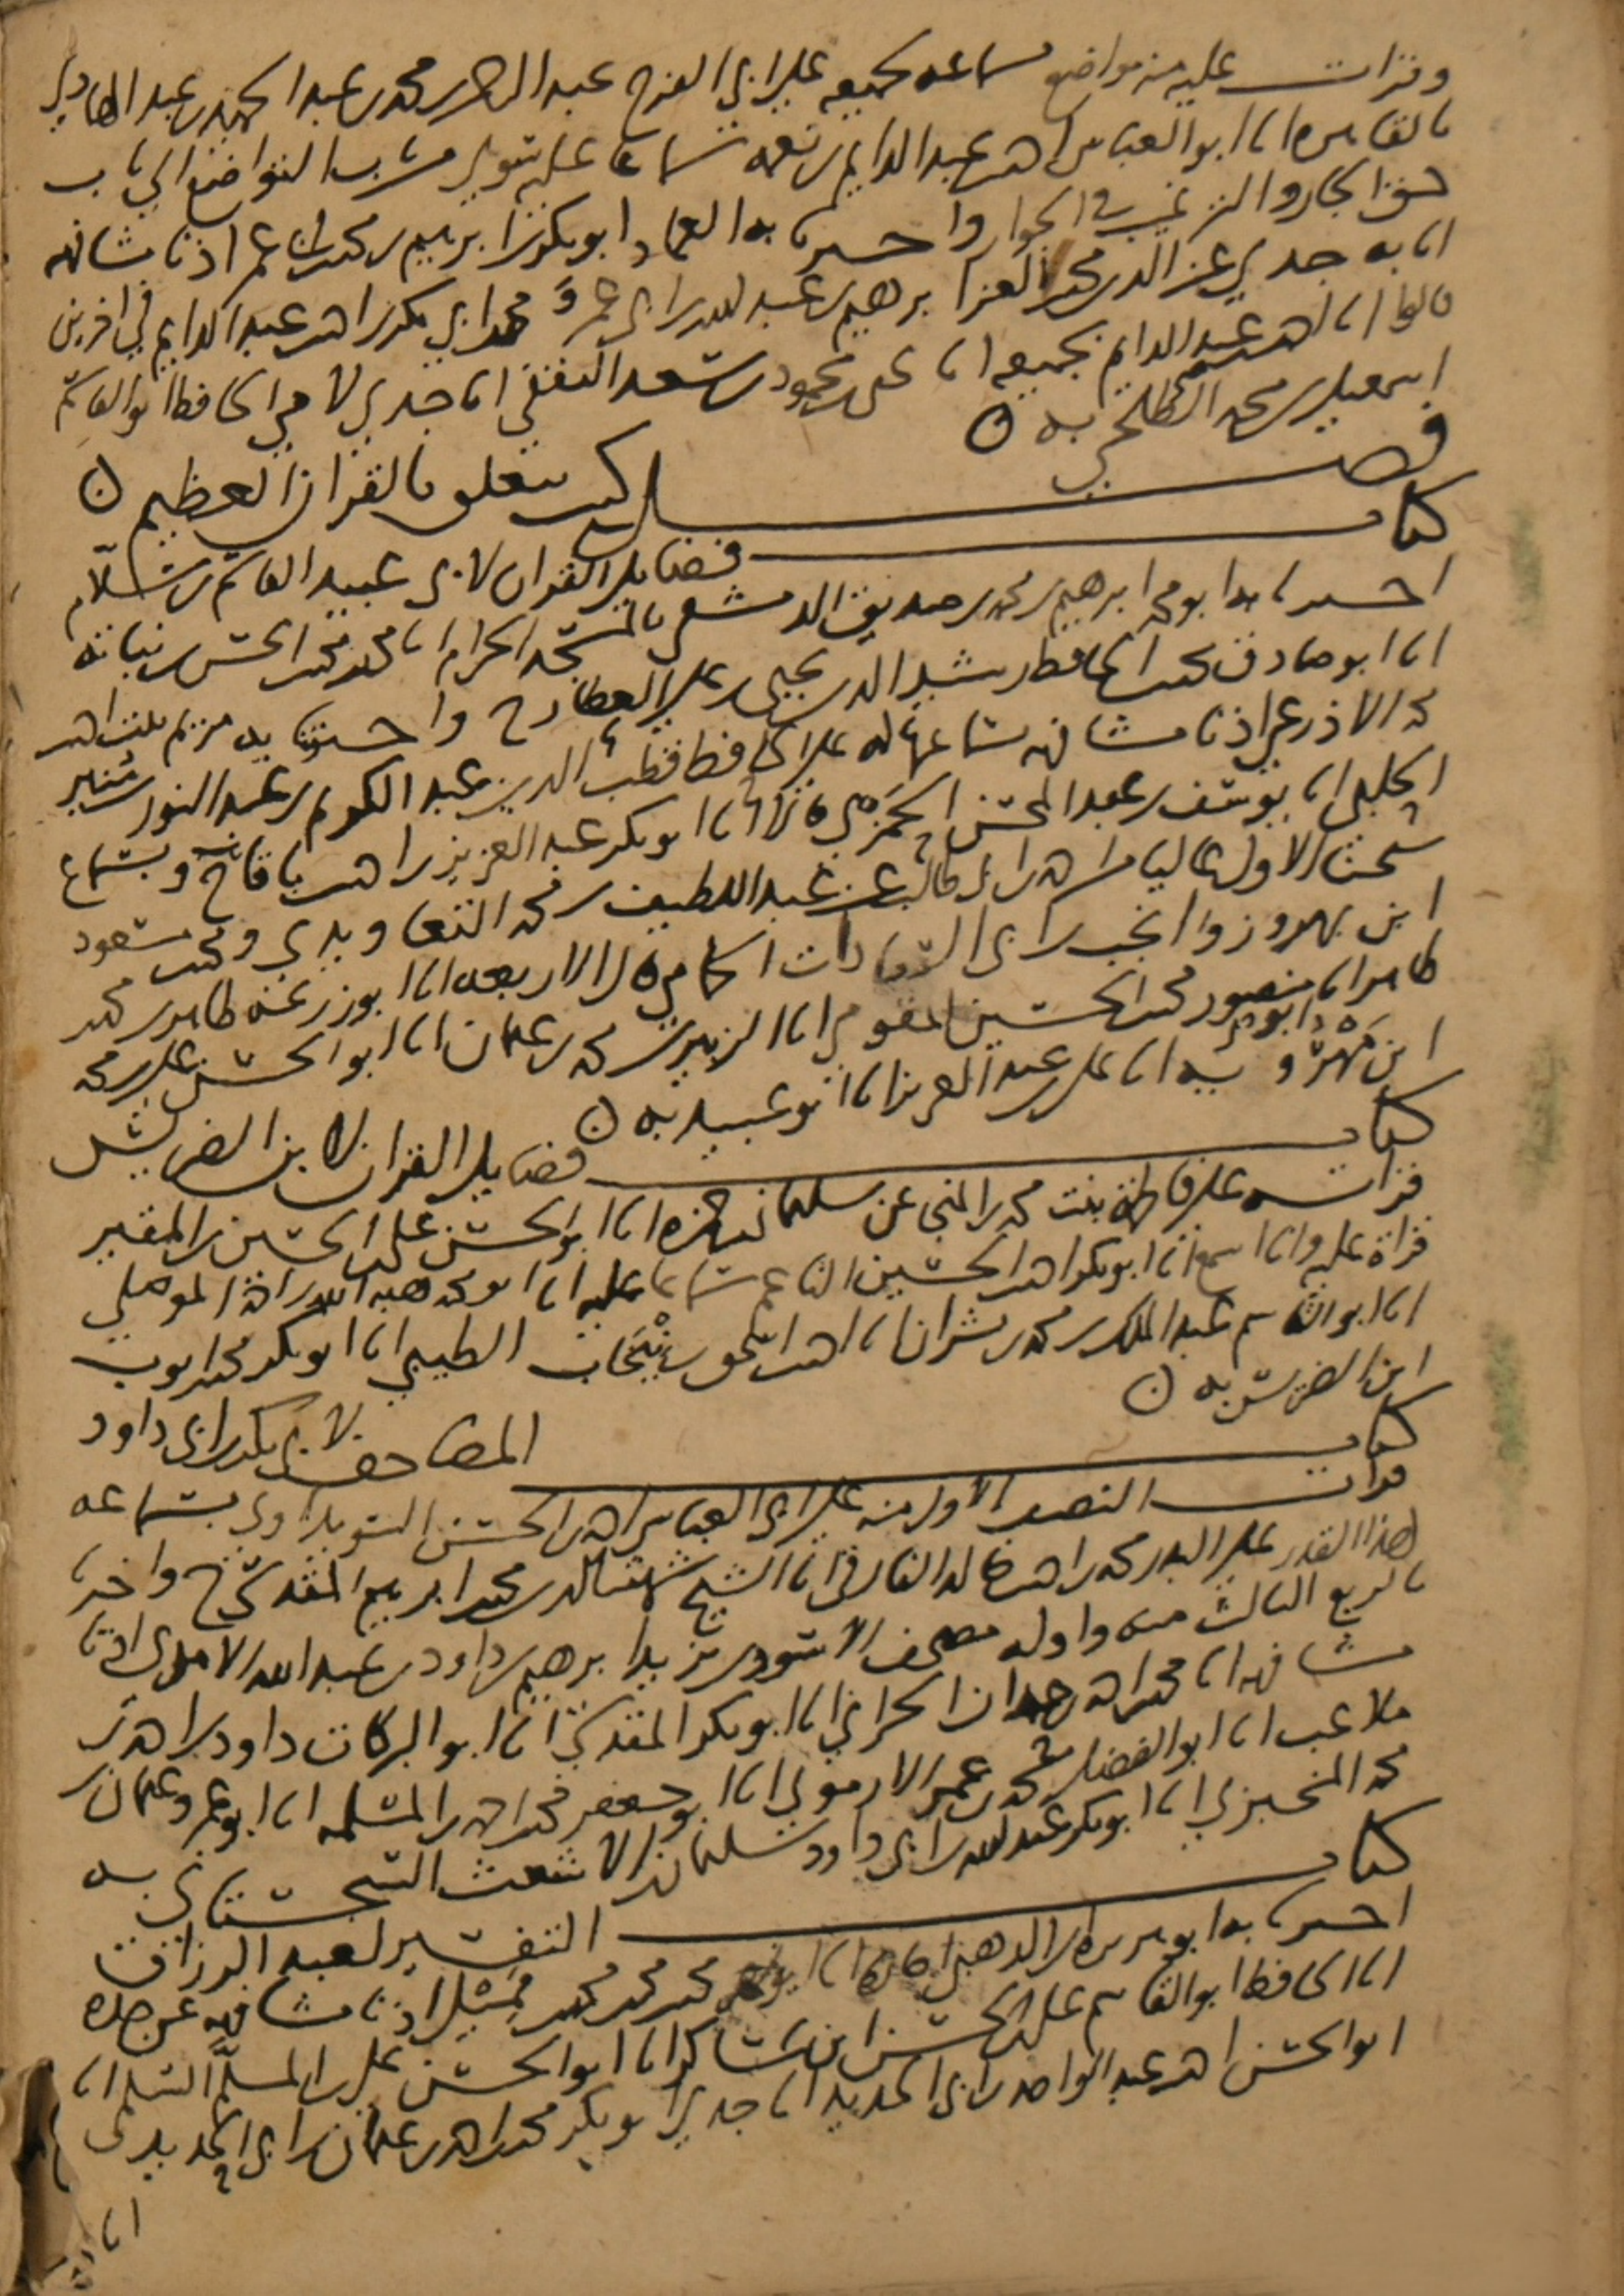 وقرات عليه منه مواضع سماعه لجميعه على ابي الفرج عبد الرحمن بن محمد بن عبد الحميد بن عبد الهادي
بالقاهرة انا ابو العباس احمد بن عبد الدايم بن نعمه سماعا عليه سوى من باب التواضع الى باب
حق الجار والترغيب في الجوار واخبرنا به العماد ابو بكر بن ابرهيم بن محمد بن العز اذنا مشافهة
انا به جدي عز الدين محمد بن العز ابرهيم بن عبد الله بن ابي عمر ومحمد بن ابي بكر بن احمد بن عبد الدايم في اخرين
قالوا انا احمد بن عبد الدايم بجميعه انا يحيى بن محمود بن سعد الثقفي انا جدي لامي الحافظ ابو القاسم
اسمعيل بن محمد الطلحي به
فصل في كتب تتعلق بالقران العظيم
كتاب فضايل القران لابي عبيد القاسم بن سلام
اخبرنا به ابو محمد ابرهيم بن محمد بن صديق الدمشقي بالمسجد الحرام انا محمد بن محمد بن الحسن بن نباته
انا ابو صادق محمد بن الحافظ رشيد الدين يحيى بن علي العطار ح واخبرتنا به مريم بنت احمد
بن الاذرعي اذنا مشافهة بسماعها له على الحافظ قطب الدين عبد الكريم بن عبد النور بن منير
الحلبي انا يوسف بن عبد المحسن الحمزي قالا انا ابو بكر عبد العزيز بن احمد بن باقا ح وبسماع
شيختنا الاول عاليا من احمد بن ابي طالب عن عبد اللطيف بن محمد التعاويذي ومحمد بن مسعود
ابن بهروز وانجب بن ابي السعادات الحمامي قالوا الاربعة انا ابو زرعة طاهر بن محمد
طاهر انا ابو منصور محمد بن الحسين المقومي انا الزبير بن محمد بن عثمان انا ابو الحسن علي بن محمد
ابن مهرويه انا علي بن عبد العزيز انا ابو عبيد به
كتاب فضايل القران لابن الضريس
قراته على فاطمة بنت محمد بن المنجى عن سليمان بن حمزه انا ابو الحسن علي بن الحسين بن المقير
قراة عليه وانا اسمع انا ابو بكر احمد بن الحسين الناعم سماعا عليه انا ابو محمد هبة الله بن احمد الموصلي
انا ابو القاسم عبد الملك بن محمد بن بشران انا احمد بن اسحق بن نيخاب الطيبي انا ابو بكر محمد بن ايوب
ابن الضريس به
كتاب المصاحف لابي بكر بن ابي داود
قرات النصف الاول منه على ابي العباس احمد بن الحسن السويداوي بسماعه
لهذا القدر على البدر محمد بن احمد بن خالد الفارقي انا الشيخ شمس الدين محمد بن ابرهيم المقدسي ح واخبرنا
بالربع الثالث منه واوله مصحف الاسود بن يزيد ابرهيم بن داود بن عبد الله الامدي اذنا
مشافهة انا محمد بن احمد بن حمدان الحراني انا ابو بكر المقدسي انا ابو البركات داود بن احمد بن
ملاعب انا ابو الفضل محمد بن عمر الارموي انا ابو جعفر محمد بن احمد بن المسلمة انا ابو عمرو عثمان بن
محمد المخبزي انا ابو بكر عبد الله بن ابي داود سليمان بن الاشعث السجستاني به
كتاب التفسير لعبد الرزاق
اخبرنا به ابو هريرة بن الذهبي اجازة انا ابو نصر محمد بن محمد بن محمد بن مميل اذنا مشافهة عن جده
انا الحافظ ابو القاسم علي بن الحسن ابن عساكر انا ابو الحسن علي بن المسلم السلمي انا
ابو الحسن احمد بن عبد الواحد بن ابي الحديد انا جدي ابو بكر محمد بن احمد بن عثمان بن ابي الحديد
انا